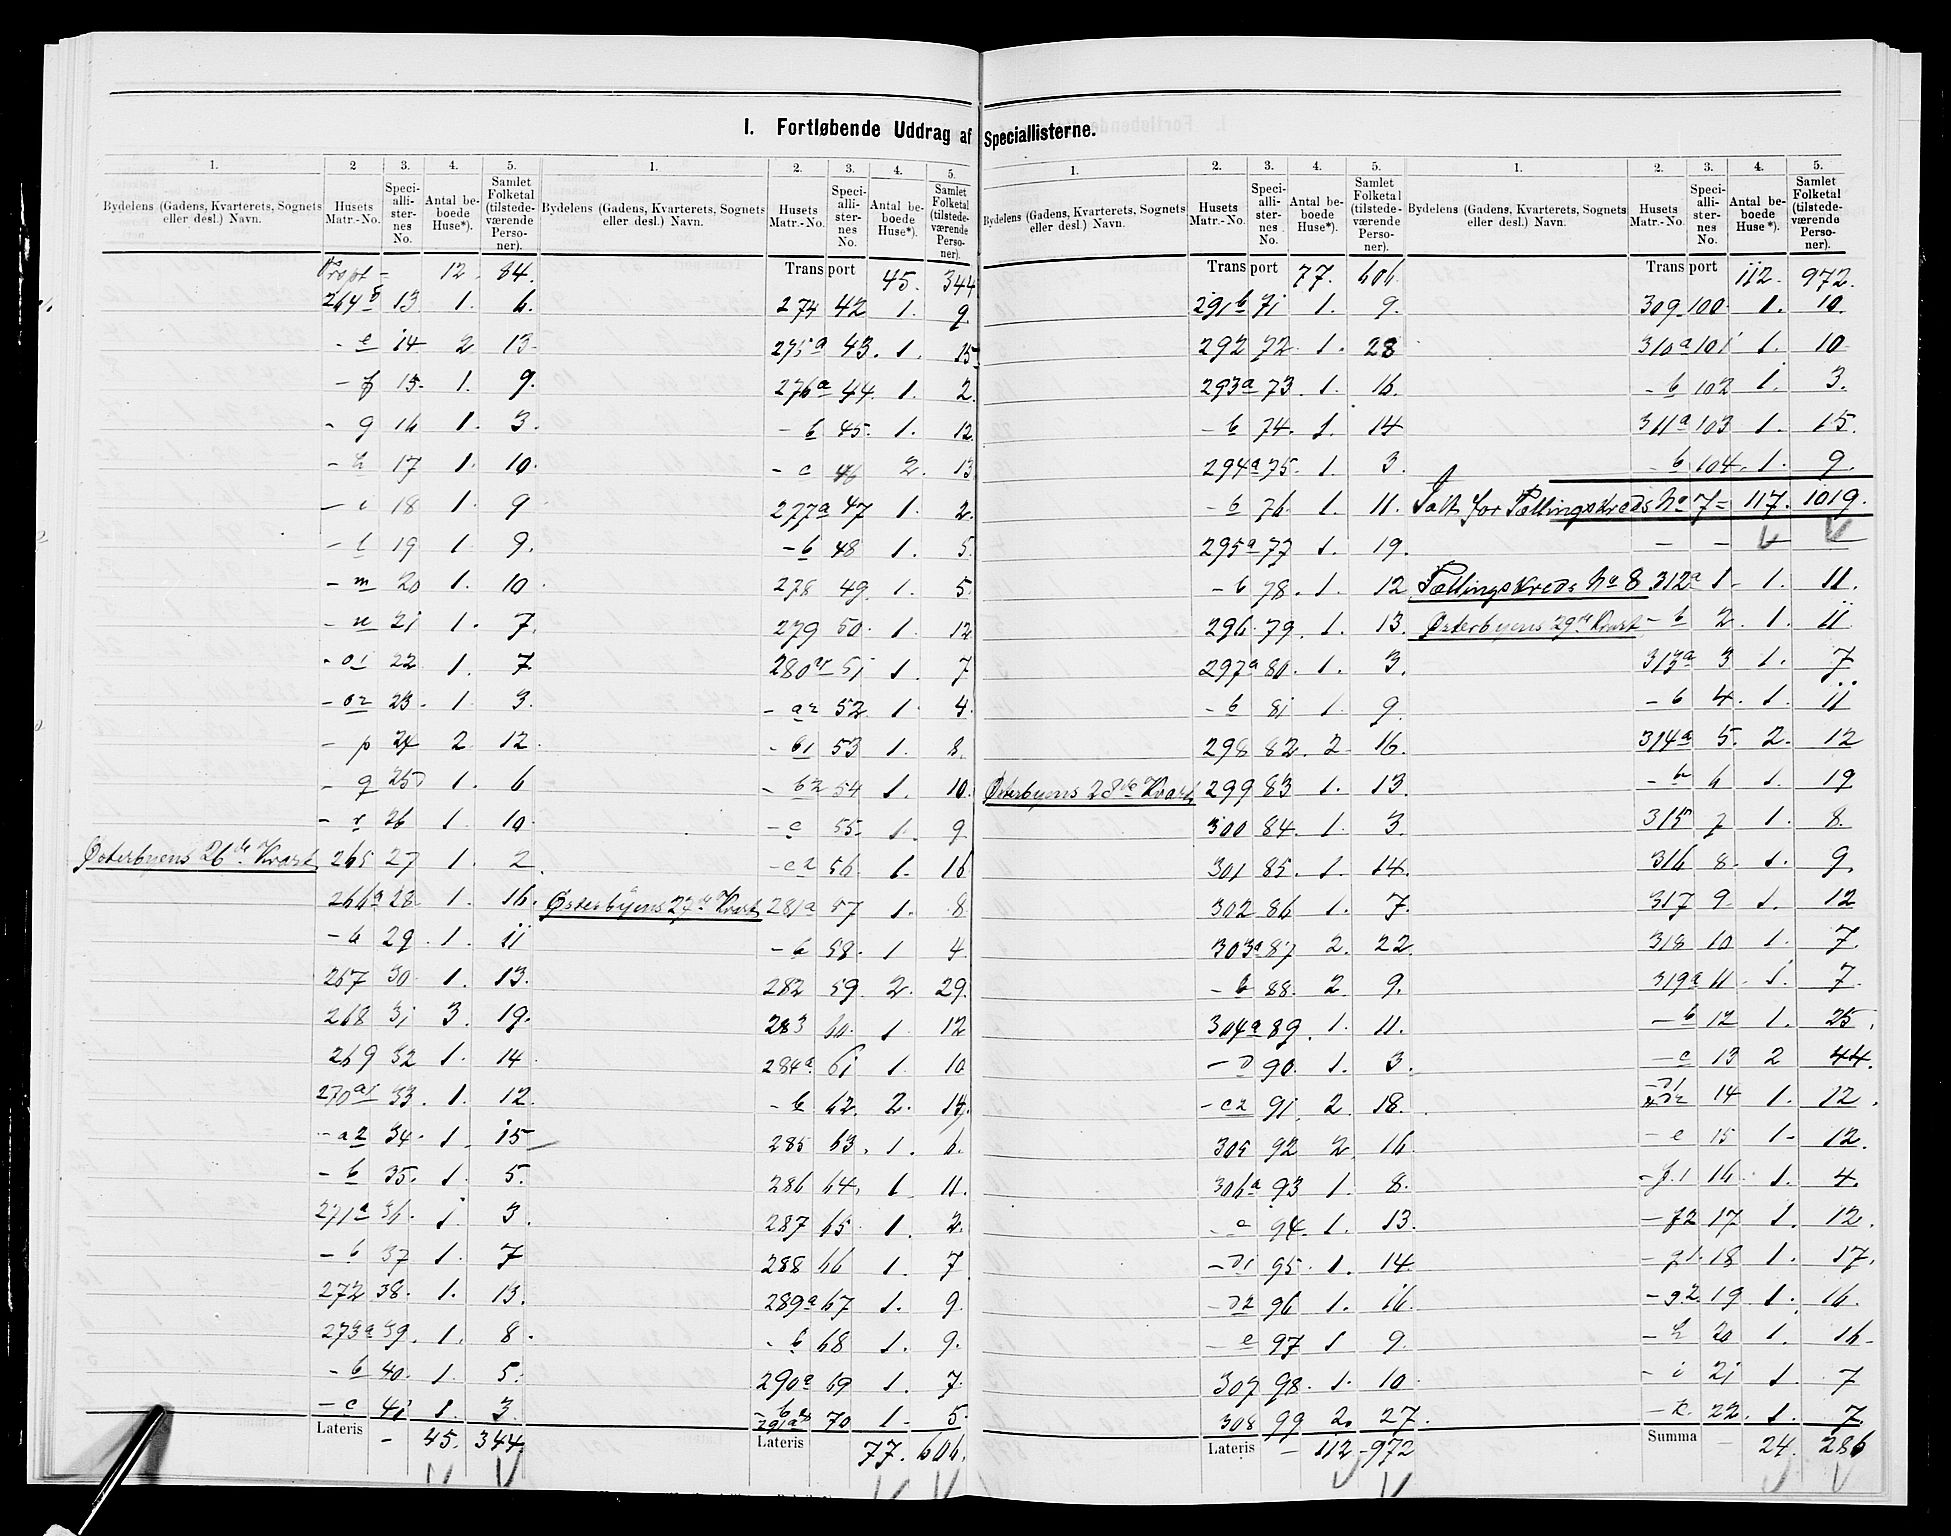 I. Fortløbende Uddrag af Speciallisterne.
1. 2 3. 4. 5.
Bydelens (Gadens, Kvarterets, Sognets eller desl.) Navn. Husets Matr.-No. Speciallisternes No. Antal beboede Huse*). Samlet Folketal (tilstedeværende Personer).
12. 84.
264 13 1. 6.
- e 14 2 13.
- f 15. 1. 9.
- g 16 1. 3.
- h 17 1. 10.
- i 18 1. 9
- l 19 1. 9.
- m 20 1. 10.
- n 21 1. 7.
- o1 22 1. 7
- o2 23. 1. 3.
- p 24 2 12.
- q 25 1. 6
- r 26 1. 10.
Østerbyens 26de Kvart. 265 27 1. 2.
266a 28. 1. 16.
- b 29. 1. 11
267 30. 1. 13.
268 31 3. 19.
269 32 1. 14.
270a1 33. 1. 12.
- a2 34. 1. 15
- b 35. 1. 5.
271a 36. 1 3.
- b 37 1. 7
272 38. 1. 13.
273a 39. 1. 8.
- b 40. 1. 5.
- c 41 1. 3.
Lateris - 45. 344
1. 2. 3. 4. 5.
Bydelens (Gadens, Kvarterets, Sognets eller desl.) Navn. Husets Matr.-No. Speciallisternes No. Antal beboede Huse*). Samlet Folketal (tilstedeværende Personer).
Transport 45. 344
274 42 1. 9
275a 43. 1. 15
276a 44. 1. 2.
- b 45. 1. 12.
- c 46 2. 13
277a 47 1. 2.
- b 48 1. 5.
278 49. 1. 5.
279 50. 1. 12
280 51 1. 7
- a2 52. 1. 4.
- b1 53 1. 8.
- b2 54 1. 10.
- c 55. 1. 9
- c2 56 1. 16
Østerbyens 27de Kvart. 281a 57 1. 8
- b 58. 1 4.
282 59 2. 29.
283 60. 1. 12
284a. 61 1. 10
- b 62. 2. 14.
285 63. 1. 6.
286 64. 1 11.
287 65. 1. 2.
288 66 1. 7.
289a 67 1. 9.
- b 68 1. 9.
290a 69 1. 7.
70 1. 5.
Lateris 77. 606.
1. 2. 3. 4. 5.
Bydelens (Gadens, Kvarterets, Sognets eller desl.) Navn. Husets Matr.-No. Speciallisternes No. Antal beboede Huse*). Samlet Folketal (tilstedeværende Personer).
Transport 77. 606.
291b 71 1. 9.
292 72 1. 28
293a 73 1. 16.
- b 74. 1. 14
294a 75. 1. 3.
- b 76 1. 11.
295a 77 1. 19.
- b 78. 1. 12
296. 79. 1. 13.
297a 80. 1. 3.
- b 81 1. 9.
298 82. 2 16.
Østerbyens 28de Kvart. 299 83 1. 13.
300 84. 1. 3.
301 85. 1. 14.
302 86 1. 7.
303a 87 2. 22.
- b 88. 2. 9.
304a 89. 1. 11.
90. 1. 3.
- c2 91 2 18.
305 92 2. 16
306a 93 1. 8.
94. 1. 13.
95. 1. 14.
96 1. 16.
- e 97 1 9.
307 98. 1. 10.
308 99 2. 27.
Lateris - 112 - 972
1. 2. 3. 4. 5.
Bydelens (Gadens, Kvarterets, Sognets eller desl.) Navn. Husets Matr.-No. Speciallisternes No. Antal beboede Huse*). Samlet Folketal (tilstedeværende Personer).
Transport 112. 972.
309 100. 1. 10.
310a 101 1. 10
- b 102 1. 3.
311a 103 1. 15.
- b 104. 1. 9.
Ialt for Tællingskreds No 7 - 117. 1019.
— — — —
Tællingskreds No 8 312a 1 - 1. 11.
Østerbyens 29de Kvart - b 2. 1. 11.
313a 3 1. 7
- b 4. 1. 11
314a 5. 2. 12
- b 6 1. 19
315 7 1. 8.
316 8. 1. 9.
317 9 1. 12
318 10 1. 7.
319a 11. 1. 7.
- b 12 1. 25.
- c 13 2 44.
14 1. 12.
- e 15 1 - 12.
- f.1 16. 1. 4.
- f2 17 1. 12.
- g1. 18 1. 17.
- g.2. 19 1. 16.
- h 20 1. 16 -
- i 21 1. 7
- k. 22. 1. 7.
Summa — 24. 286